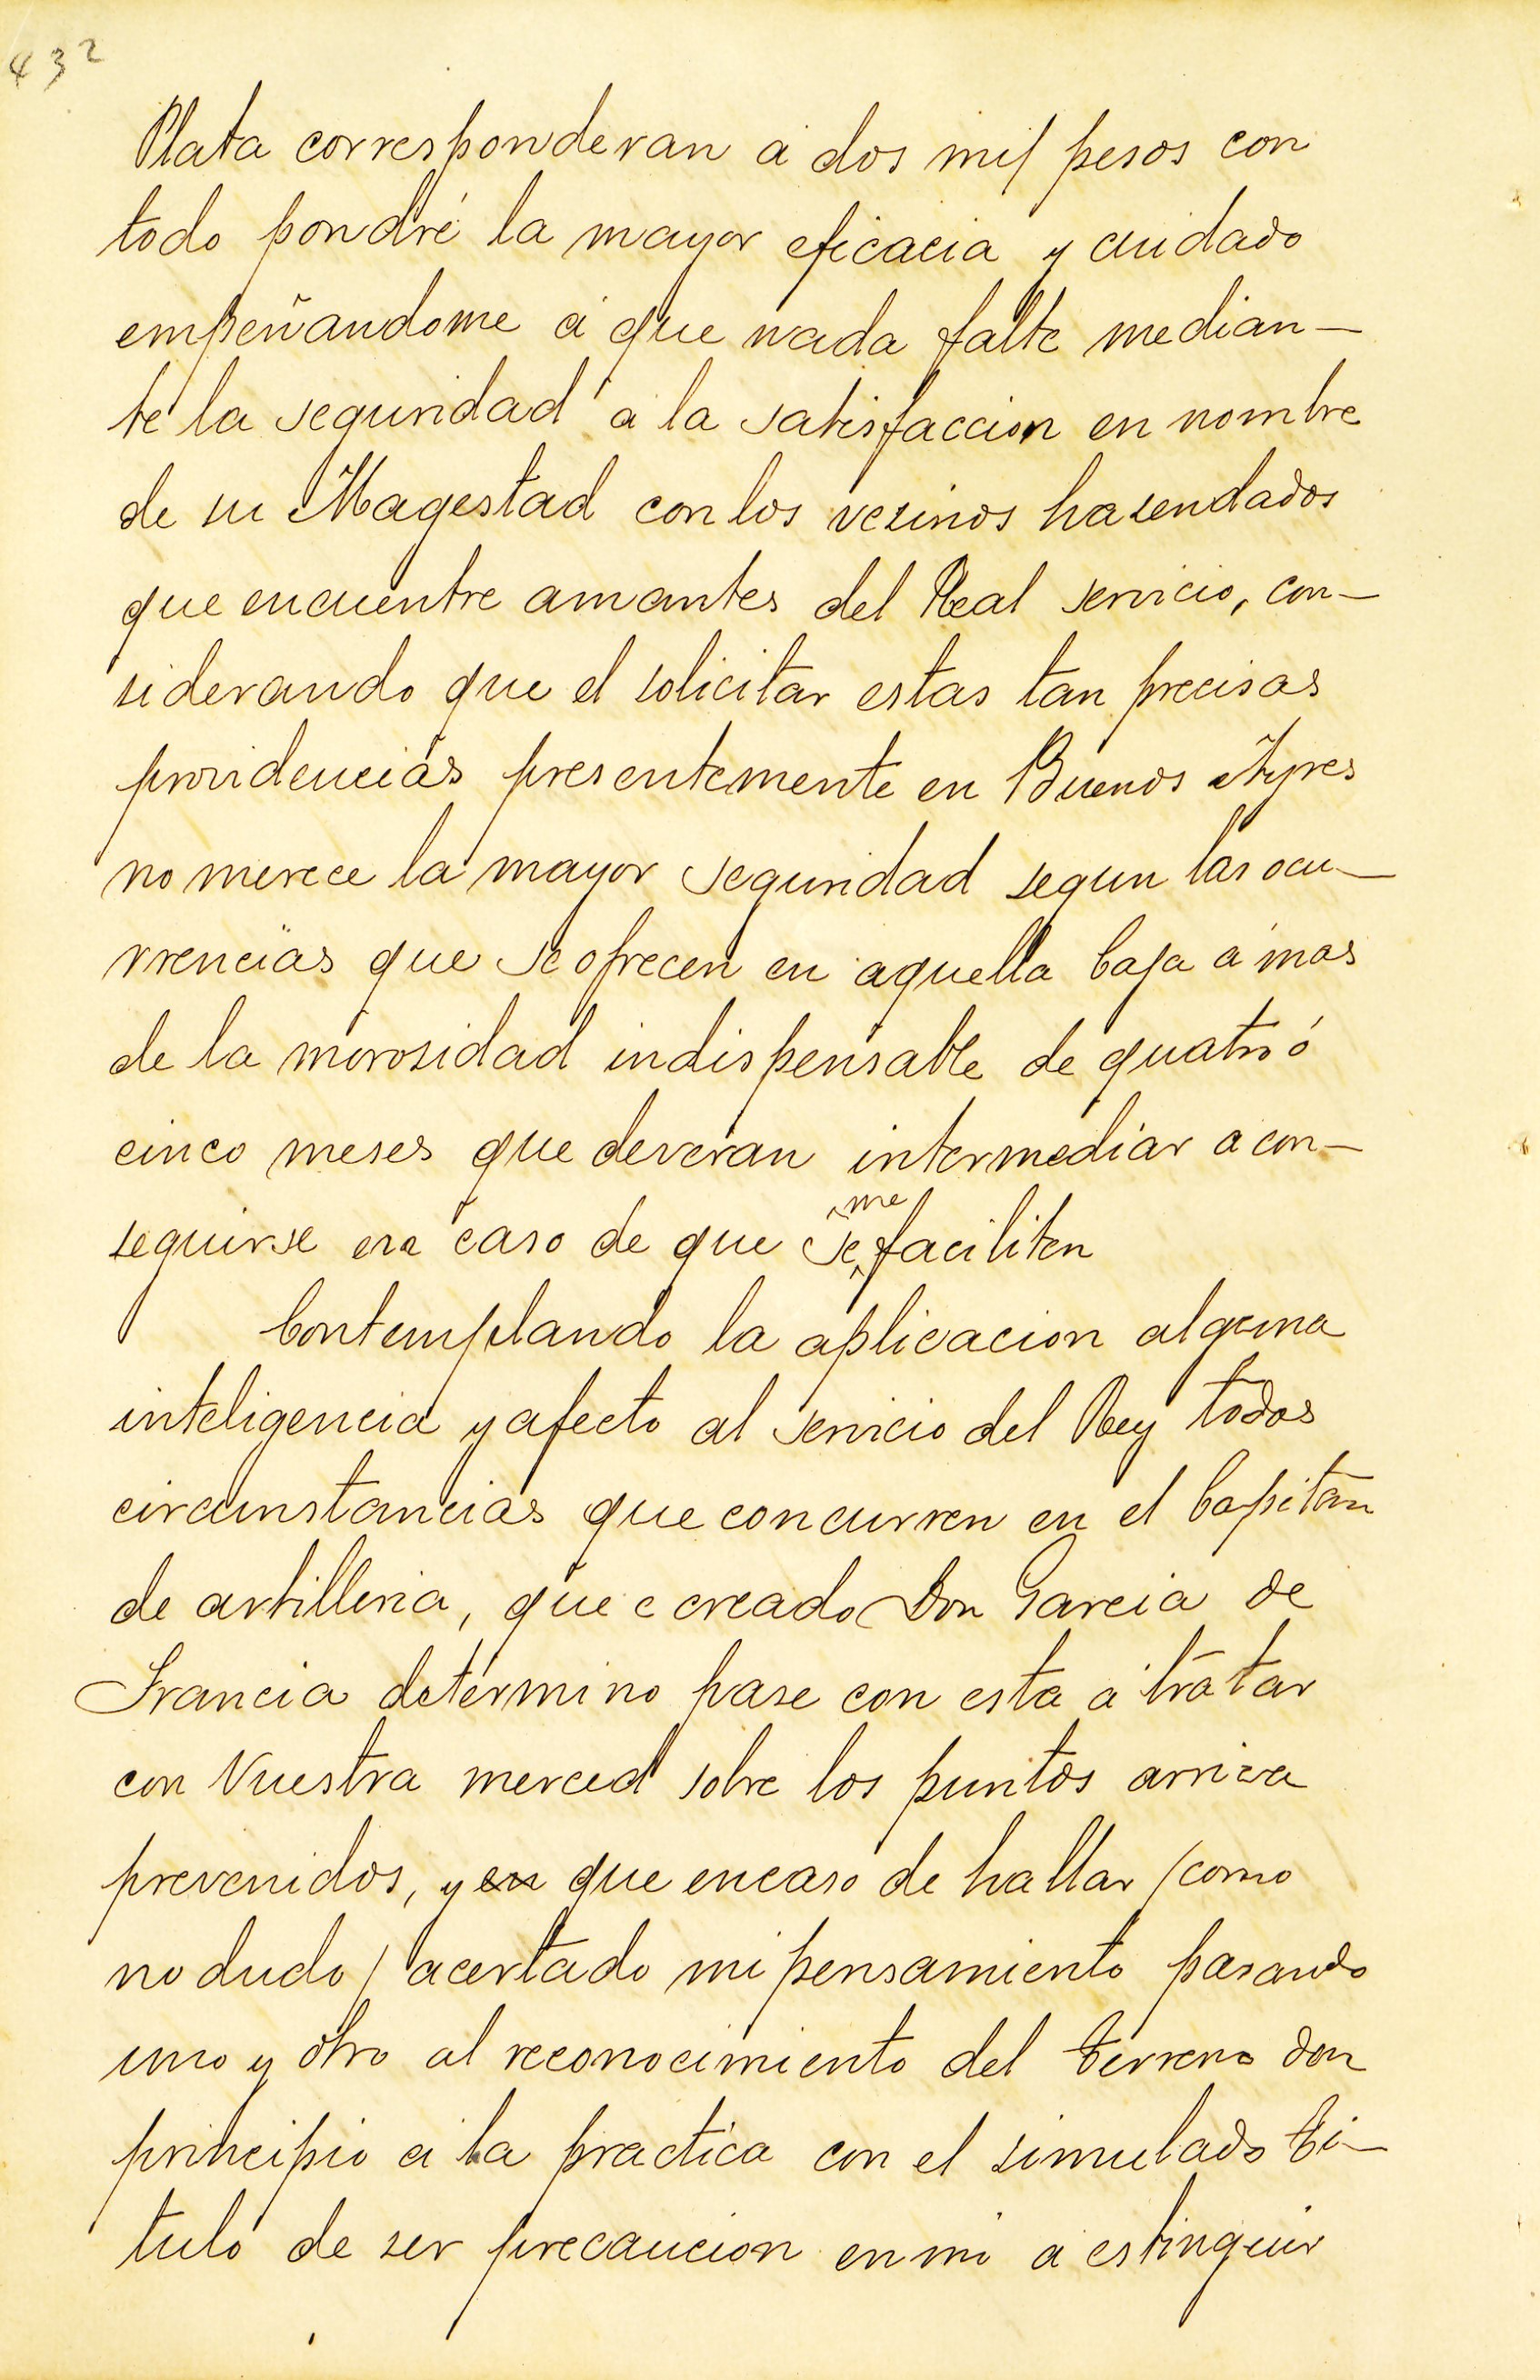 432
Plata corresponderan a dos mil pesos con
todo pondré la mayor eficacia y cuidado
empeñandome á que nada falte median—
te la seguridad a la satisfaccion en nombre
de su Magestad con los vezinos hazendados
que encuentre amantes del Real servicio, con—
siderando que el solicitar estas tan precisas
providencias presentemente en Buenos Ayres
no merece la mayor seguridad segun las ocu—
rrencias que se ofrecen en aquella Caja a mas
de la morosidad indispensable de quatro ó
cinco meses que deveran intermediar a con—
seguirse en caso de que se me faciliten
Contemplando la aplicacion alguna
inteligencia y afecto al servicio del Rey todas
circunstancias que concurren en el Capitan
de artilleria, que e creado Don Garcia de
Francia determino pase con esta á tratar
con Vuestra merced sobre los puntos arriva
prevenidos, y en que en caso de hallar (como
no dudo) acertado mi pensamiento pasando
uno y otro al reconocimiento del terreno den
principio a la practica con el simulado ti—
tulo de ser precaucion en mi a estinguir